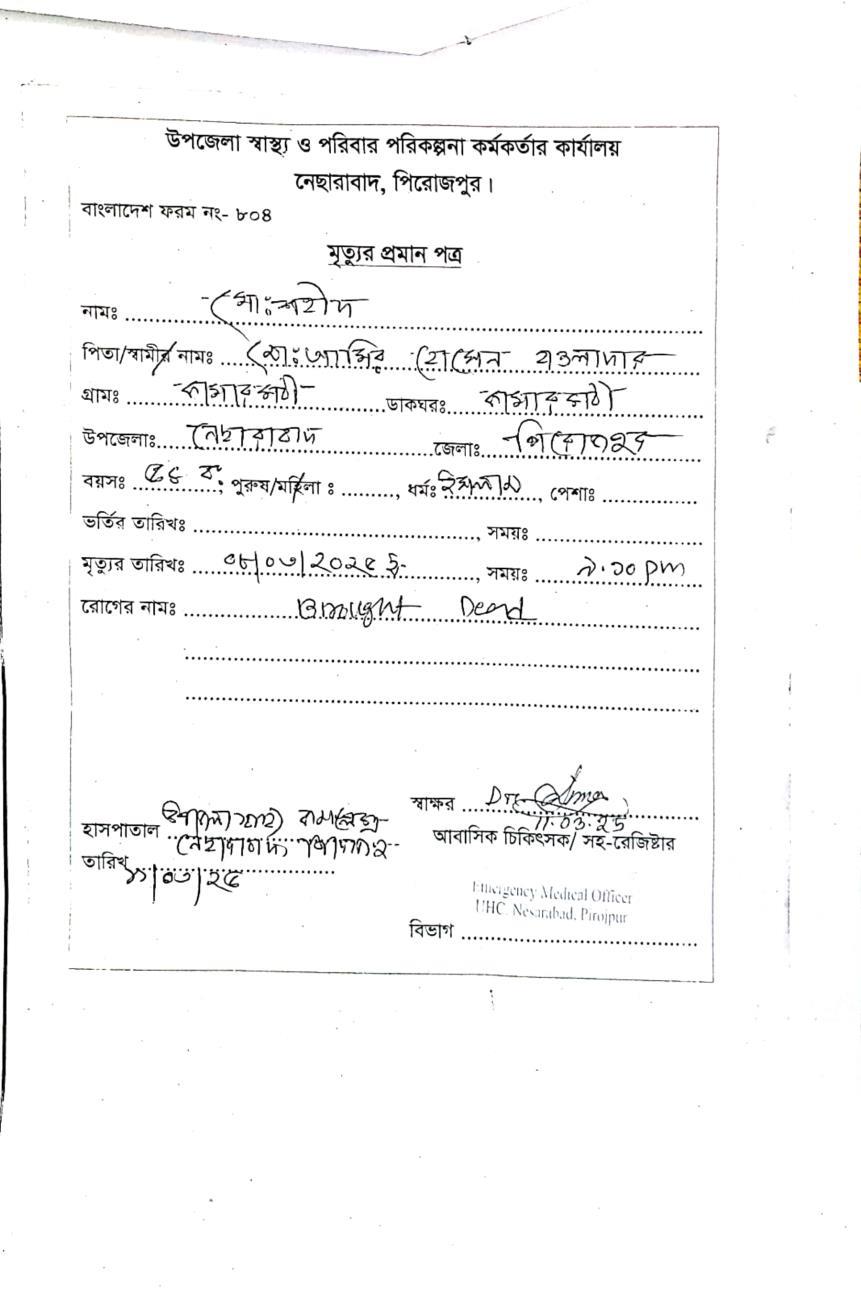 উপজেলা স্বাস্থ্য ও পরিবার পরিকল্পনা কর্মকর্তার কার্যালয়
নেছারাবাদ, পিরোজপুর।
বাংলাদেশ ফরম নং- ৮০৪
মৃত্যুর প্রমান পত্র
নামঃ মোঃ শহীদ
পিতা/স্বামীর নামঃ মোঃ আমির হোসেন হাওলাদার
গ্রামঃ কামারকাঠী ডাকঘরঃ কামারকাঠী
উপজেলাঃ নেছারাবাদ জেলাঃ পিরোজপুর
বয়সঃ ব: পুরুষ/মহিলা ঃ, ধর্মঃ ইসলাম, পেশাঃ
ভর্তির তারিখঃ, সময়ঃ
মৃত্যুর তারিখঃ ০৮/০৩/২০২৫ ইং, সময়ঃ ৯.১০ pm
রোগের নামঃ Brought Dead
স্বাক্ষর Dr.
11.03.25
হাসপাতাল উপজেলা স্বাস্থ্য
আবাসিক চিকিৎসক/ সহ-রেজিষ্টার
নেছারাবাদ পিরোজপুর
তারিখ ১১/০৩/২৫
Emergency Medical Officer
UHC, Nesarabad, Pirojpur
বিভাগ